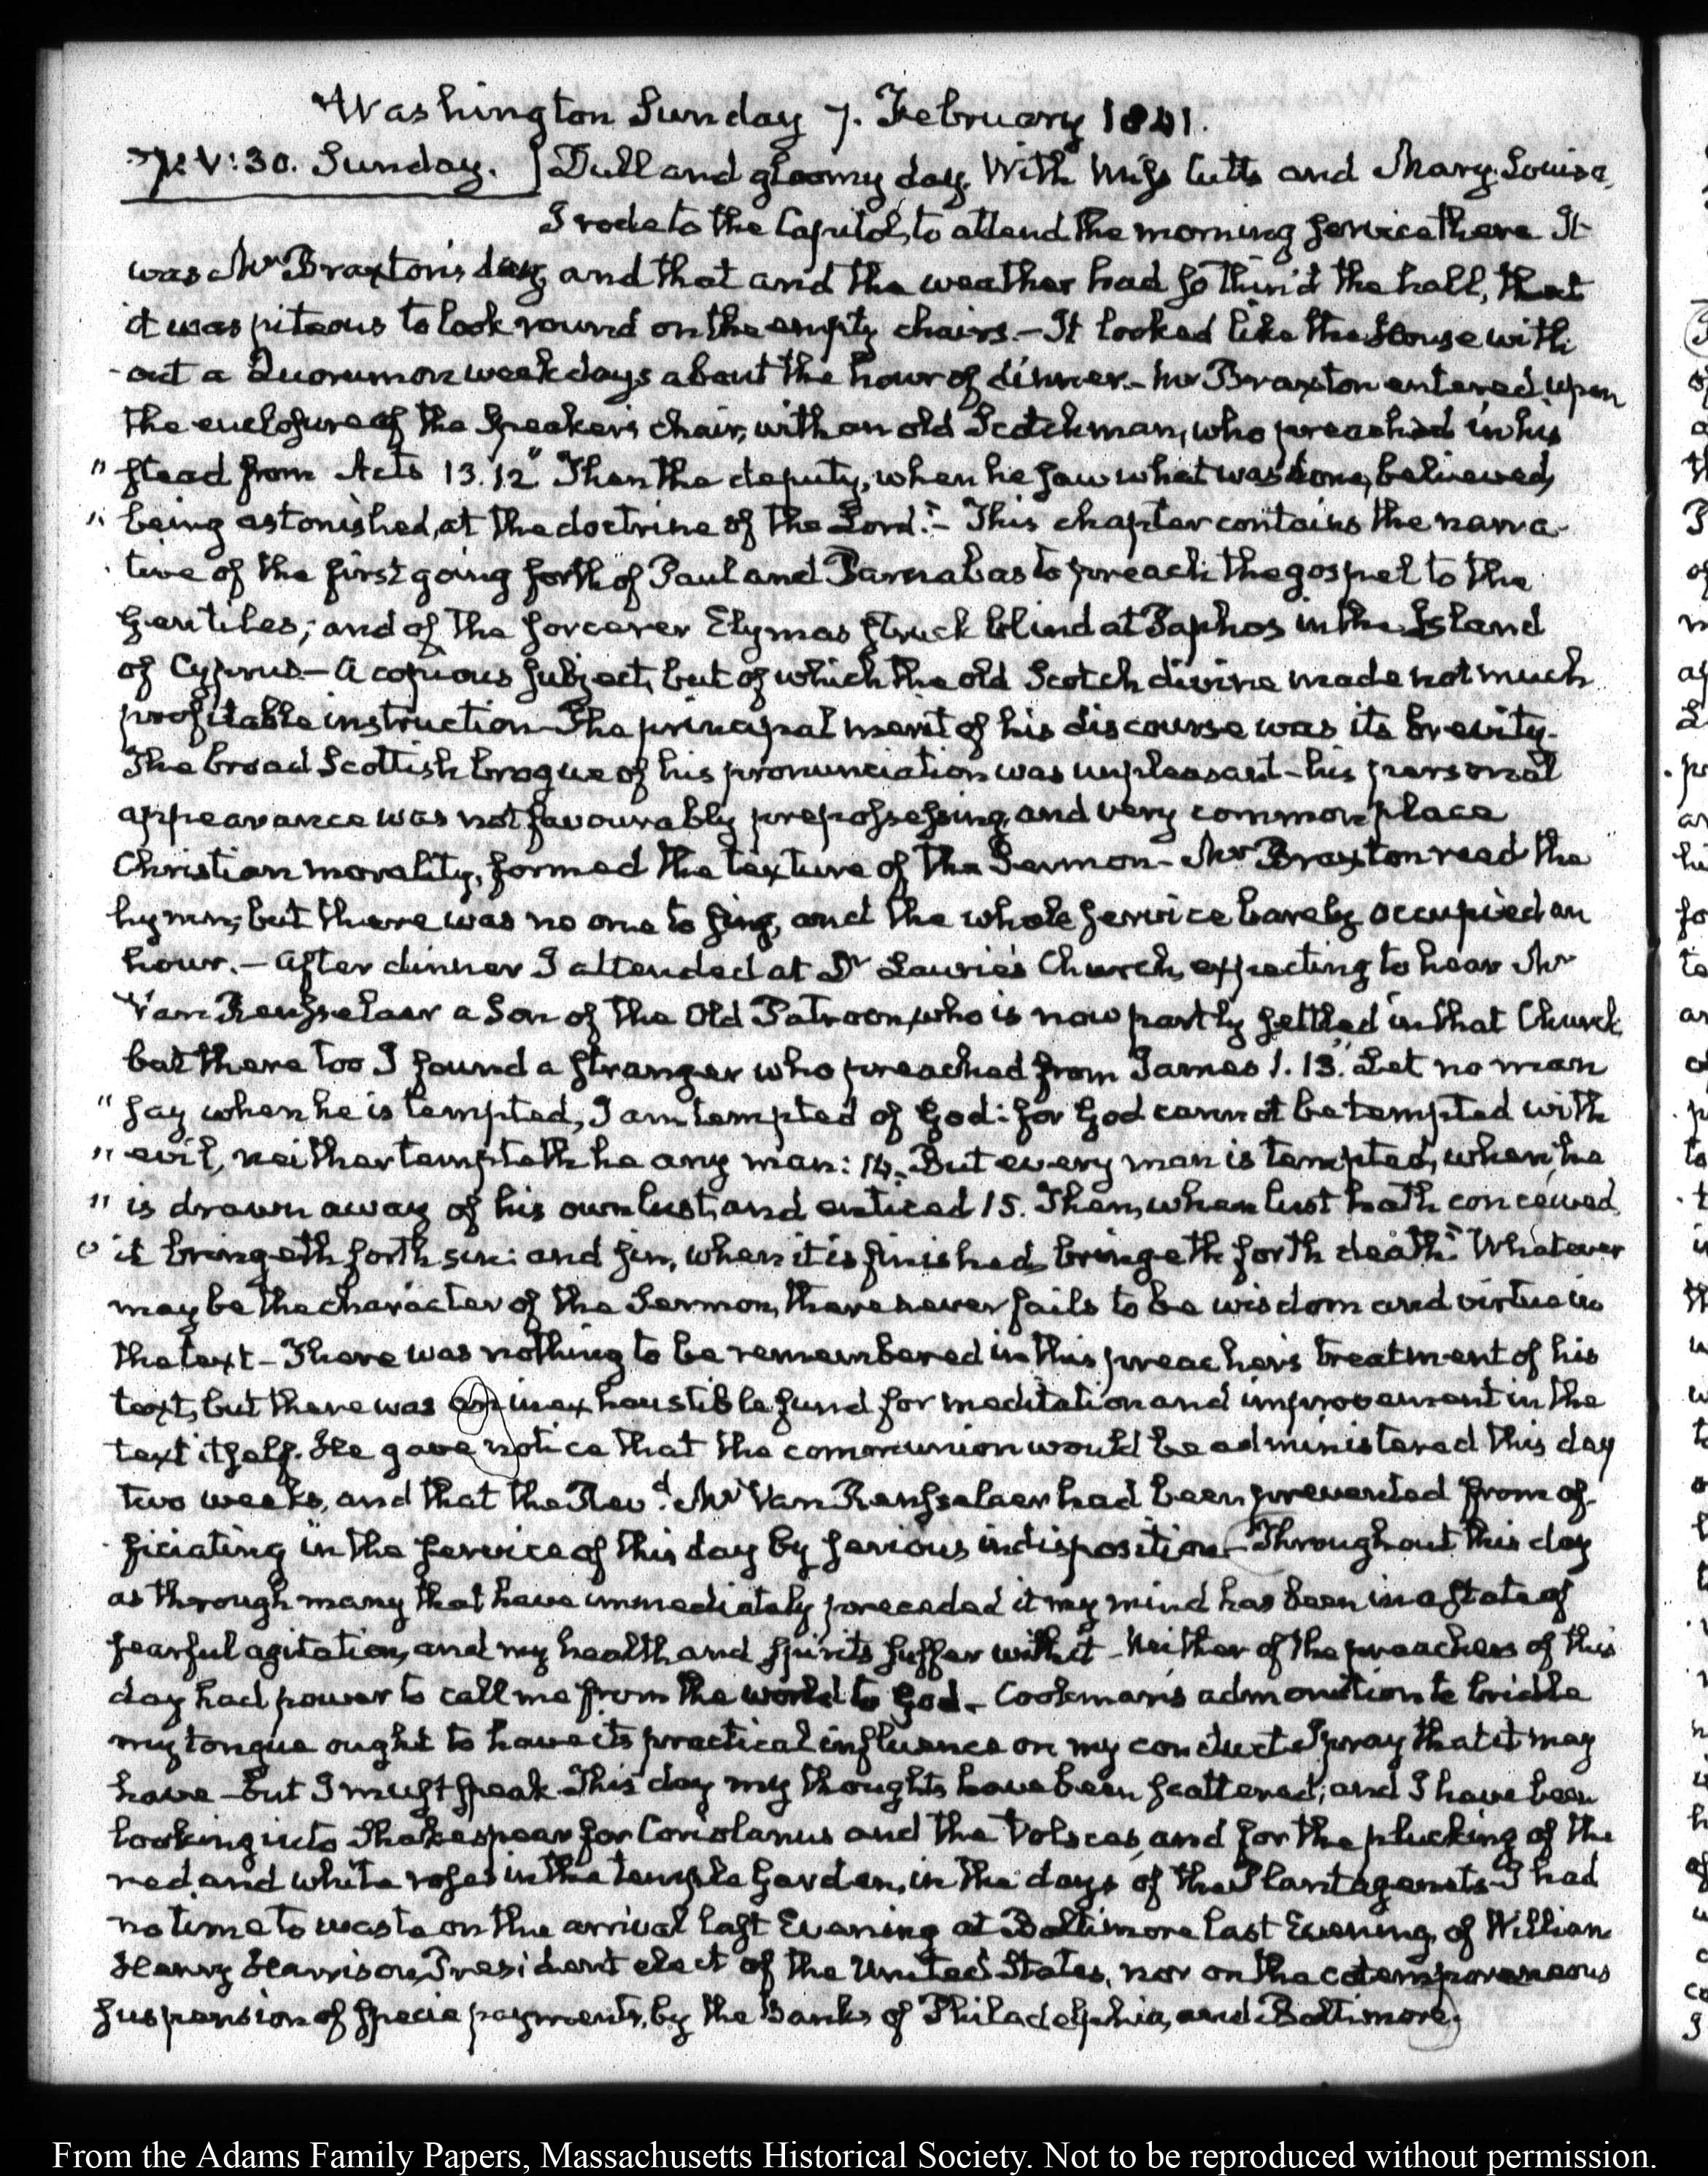 Washington Sunday 7. February 1841.
7. V:30. Sunday. Dull and gloomy day. With Miss Cutts and Mary-Louisa,
I rode to the Capitol, to attend the morning service there. It
was Mr Braxton's day, and that and the weather had so thin'd the hall, that
it was piteous to look round on the empty chairs.— It looked like the House with
-out a Quorum on week days about the hour of dinner.— Mr Braxton entered upon
the enclosure of the Speaker's chair, with an old Scotchman, who preached in his
" stead from Acts 13.12" Then the deputy, when he saw what was done, believed,
" being astonished, at the doctrine of the Lord."— This chapter contains the narra-
tive of the first going forth of Paul and Barnabas to preach the gospel to the
Gentiles; and of the sorcerer Elymas struck blind at Paphos in the Island
of Cyprus.— A copious subject, but of which the old Scotch divine made not much
profitable instruction— The principal merit of his discourse was its brevity.
The broad Scottish brogue of his pronunciation was unpleasant— his personal
appearance was not favourably prepossessing, and very common place
Christian morality, formed the texture of the Sermon— Mr Braxton read the
hymn; but there was no one to sing, and the whole service barely occupied an
hour.— After dinner I attended at Dr Laurie's Church, expecting to hear Mr
Van Rensselaer a Son of the Old Patroon, who is now partly settled in that Church
but there too I found a stranger who preached from James 1.13." Let no man
" say when he is tempted, I am tempted of God: for God cannot be tempted with
" evil, neither tempteth he any man: 14. But every man is tempted, when he
" is drawn away of his own lust, and enticed 15. Then, when lust hath conceived,
" it bringeth forth sin: and sin, when it is finished, bringeth forth death." Whatever
may be the character of the Sermon, there never fails to be wisdom and virtue in
the text— There was nothing to be remembered in this preacher's treatment of his
text, but there was an inexhaustible fund for meditation and improvement in the
text itself. He gave notice that the communion would be administered this day
two weeks, and that the Revd. Mr Van Rensselaer had been prevented from of-
-ficiating in the service of this day by serious indisposition— Throughout this day
as through many that have immediately preceded it my mind has been in a state of
fearful agitation, and my health and spirits suffer with it— Neither of the preachers of this
day had power to call me from the world to God— Cookman's admonition to bridle
my tongue ought to have its practical influence on my conduct I pray that it may
have— but I must speak. This day my thoughts have been scattered; and I have been
looking into Shakespear for Coriolanus and the Volsces, and for the plucking of the
red and white roses in the temple Garden, in the days of the Plantagenets— I had
no time to waste on the arrival last Evening at Baltimore last Evening, of William
Henry Harrison, President elect of the United States, nor on the cotemporaneous
suspension of specie payments, by the Banks of Philadelphia, and Baltimore.
From the Adams Family Papers, Massachusetts Historical Society. Not to be reproduced without permission.